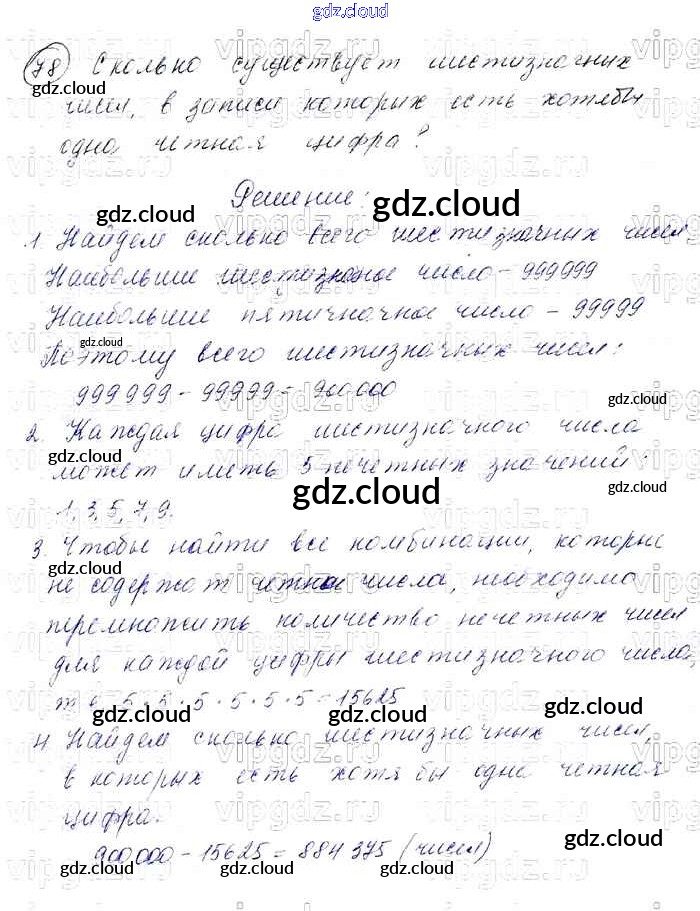 gdz.cloud
78 Сколько существует шестизначных
чисел, в записи которых есть хотябы
одна четная цифра?
Решение:
1. Найдем сколько всего шестизначных чисел
Наибольшие шестизначное число - 999999
Наибольшие пятизначное число - 99999
Поэтому всего шестизначных чисел:
999999 - 99999 = 900000
2. Каждая цифра шестизначного числа
может иметь 5 нечетных значений:
1, 3, 5, 7, 9.
3. Чтобы найти все комбинации, которые
не содержат четные числа, необходимо
перемножить количество нечетных чисел
для каждой цифры шестизначного числа,
5 · 5 · 5 · 5 · 5 · 5 = 15625
4. Найдем сколько шестизначных чисел,
в которых есть хотя бы одна четная
цифра.
900000 - 15625 = 884375 (чисел)